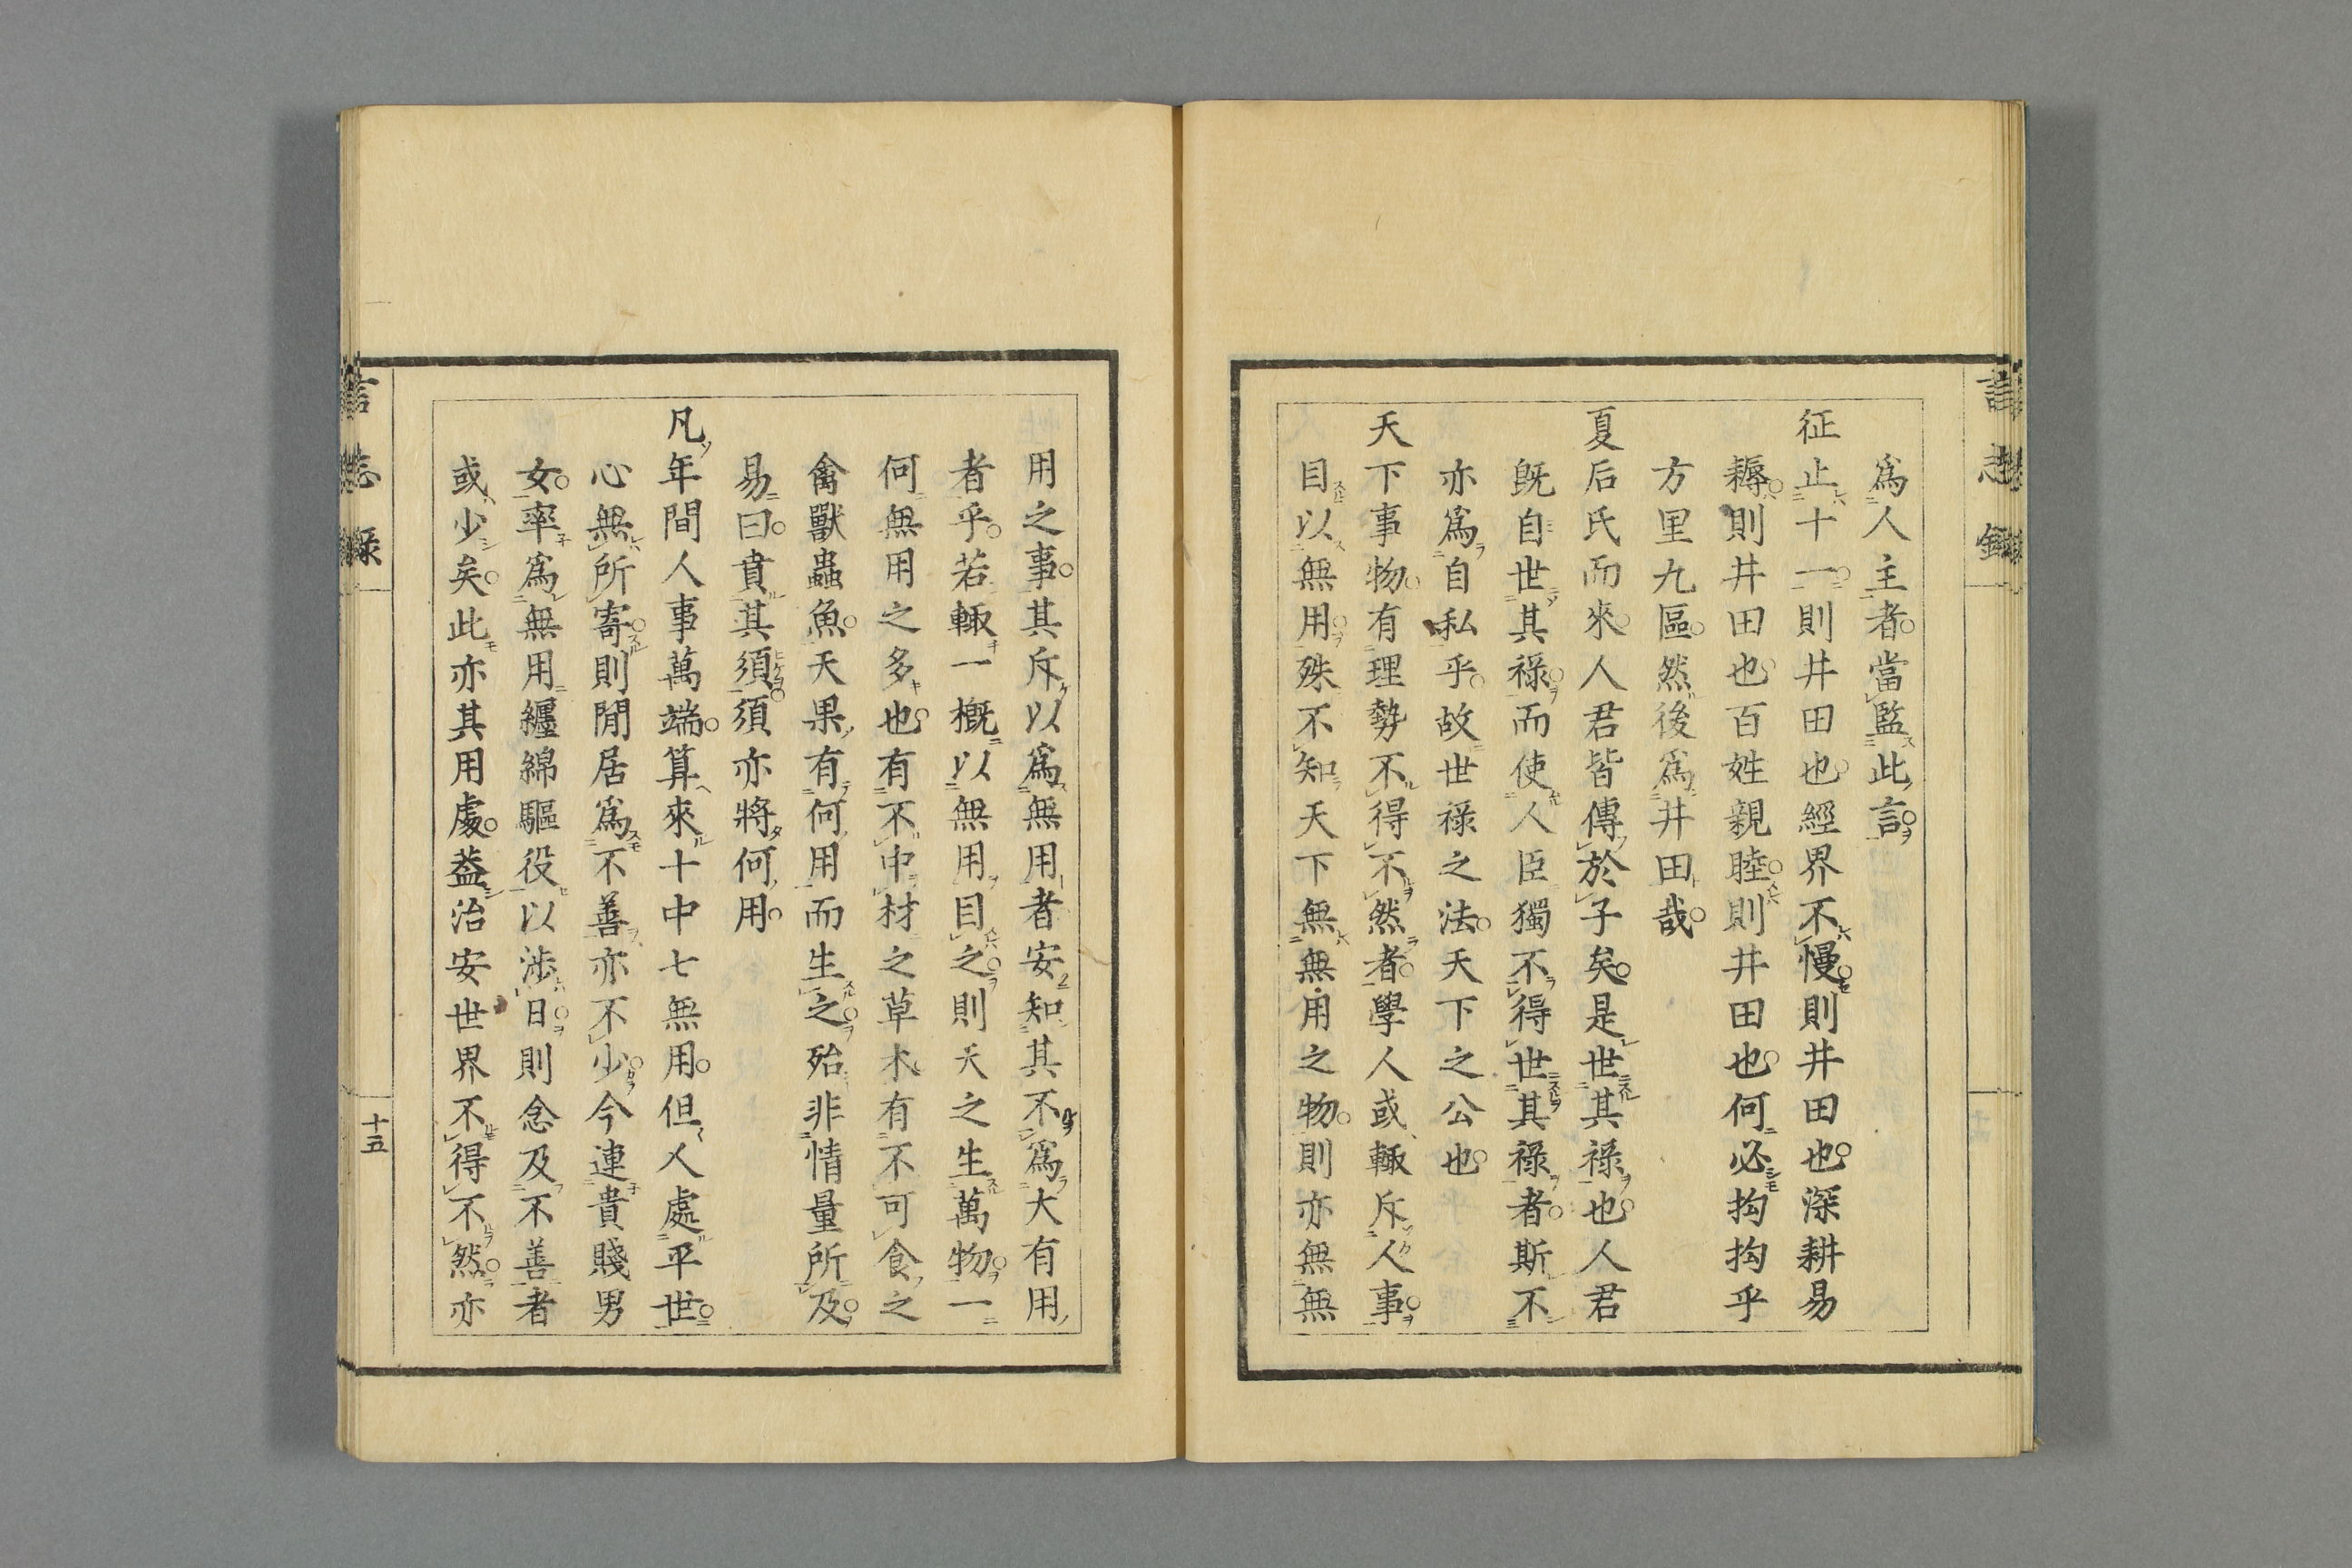 言志録
爲人主者當監此言
征止十一則井田也經界不慢則井田也深耕易
耨則井田也百姓親睦則井田也何必拘拘乎
方里九區然後爲井田哉
夏后氏而來人君皆傳於子矣是世其祿也人君
既自世其祿而使人臣獨不得世其祿者斯不
亦爲自私乎故世祿之法天下之公也
天下事物有理勢不得不然者學人或輙斥人事
目以無用殊不知天下無無用之物則亦無無
用之事其斥以爲無用者安知其不爲大有用
者乎若輙一概以無用目之則天之生萬物一
何無用之多也有不中材之草木有不可食之
禽獸蟲魚天果有何用而生之殆非情量所及
易曰賁其須須亦將何用
凡年間人事萬端算來十中七無用但人處平世
心無所寄則閒居爲不善亦不少今連貴賤男
女率爲無用纏綿驅役以渉日則念及不善者
或少矣此亦其用處葢治安世界不得不然亦
言志録
十五